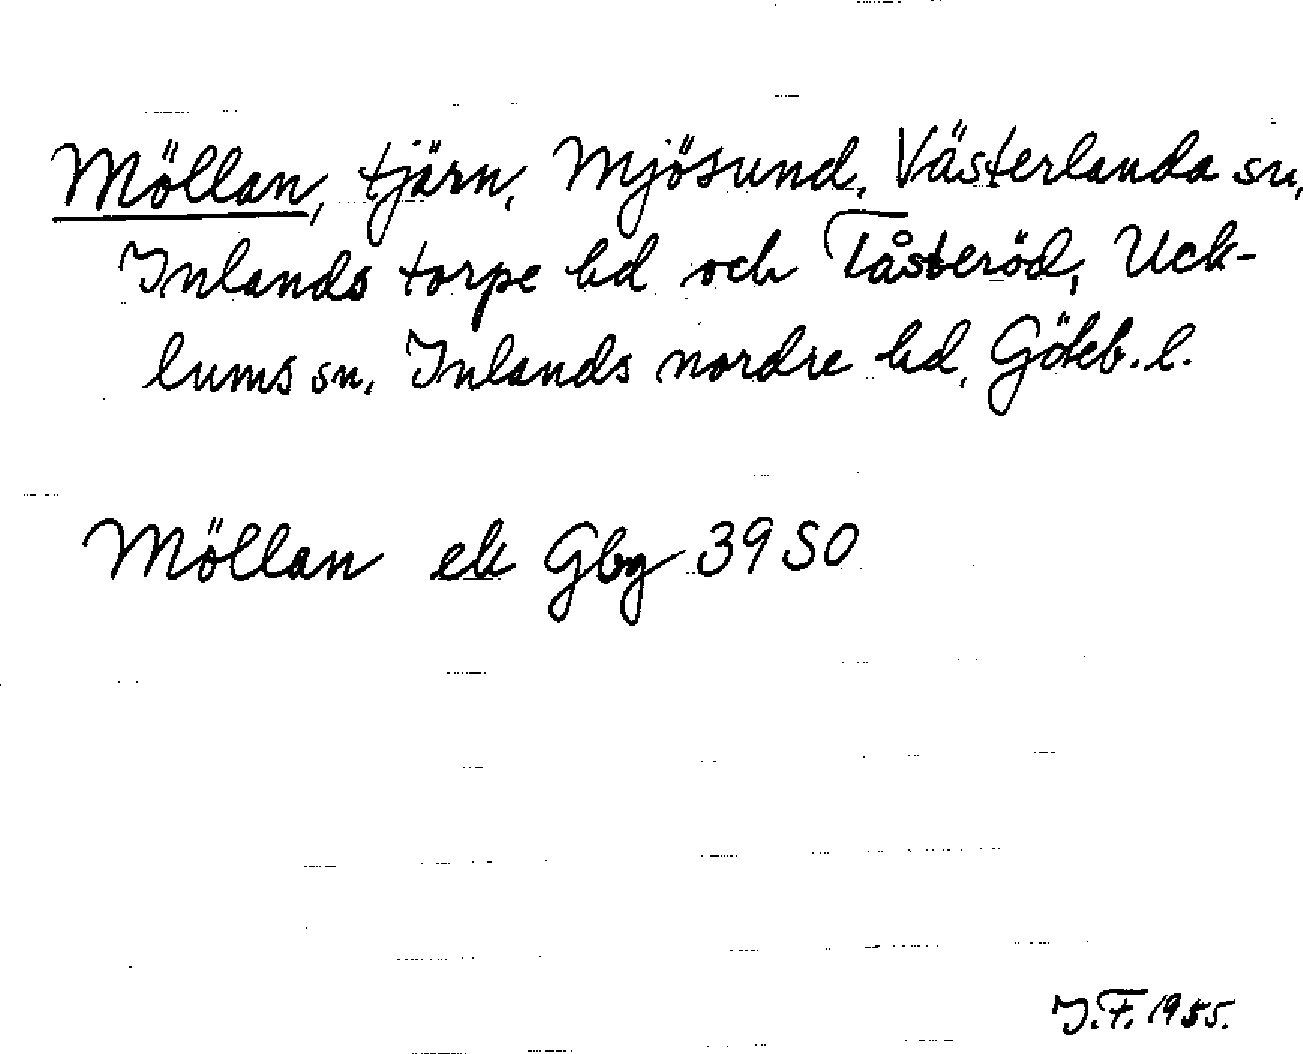 Möllan, tjärn, Mjösund, Västerlanda sn,
Inlands torpe hd och Tåsteröd, Uck-
lums sn, Inlands nordre hd, Göteb. l.
Möllan ek Gbg 39 SO
J.F. 1955.